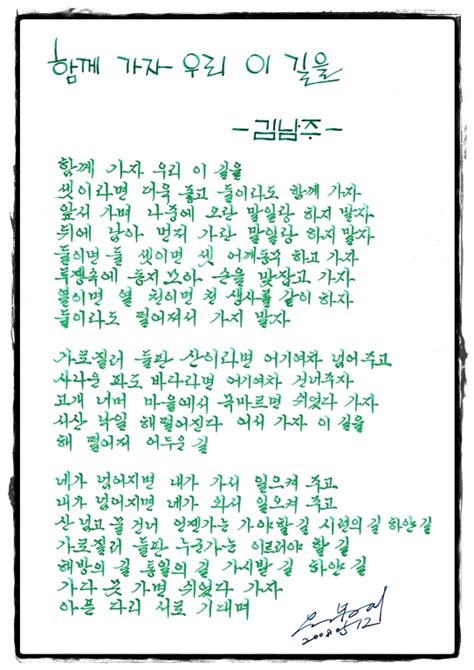 함께 가자 우리 이 길을
-김남주-
함께 가자 우리 이 길을
셋이라면 더욱 좋고 둘이라도 함께 가자
앞서 가며 나중에 오란 말일랑 하지 말자
뒤에 남아 먼저 가란 말일랑 하지 말자
둘이면 둘 셋이면 셋 어깨동무 하고 가자
투쟁속에 동지 모아 손을 맞잡고 가자
열이면 열 천이면 천 생사를 같이 하자
둘이라도 떨어져서 가지 말자
가로질러 들판 산이라면 어기여차 넘어주고
사나운 파도 바다라면 어기여차 건너주자
고개 너머 마을에서 목마르면 쉬었다 가자
서산 낙일 해 떨어진다 어서 가자 이 길을
해 떨어져 어두운 길
네가 넘어지면 내가 가서 일으켜 주고
내가 넘어지면 네가 와서 일으켜 주고
산 넘고 물 건너 언젠가는 가야할 길 시련의 길 하얀 길
가로질러 들판 누군가는 이르러야 할 길
해방의 길 통일의 길 가시밭 길 하얀 길
가다 못 가면 쉬었다 가자
아픈 다리 서로 기대며
2008 05 12